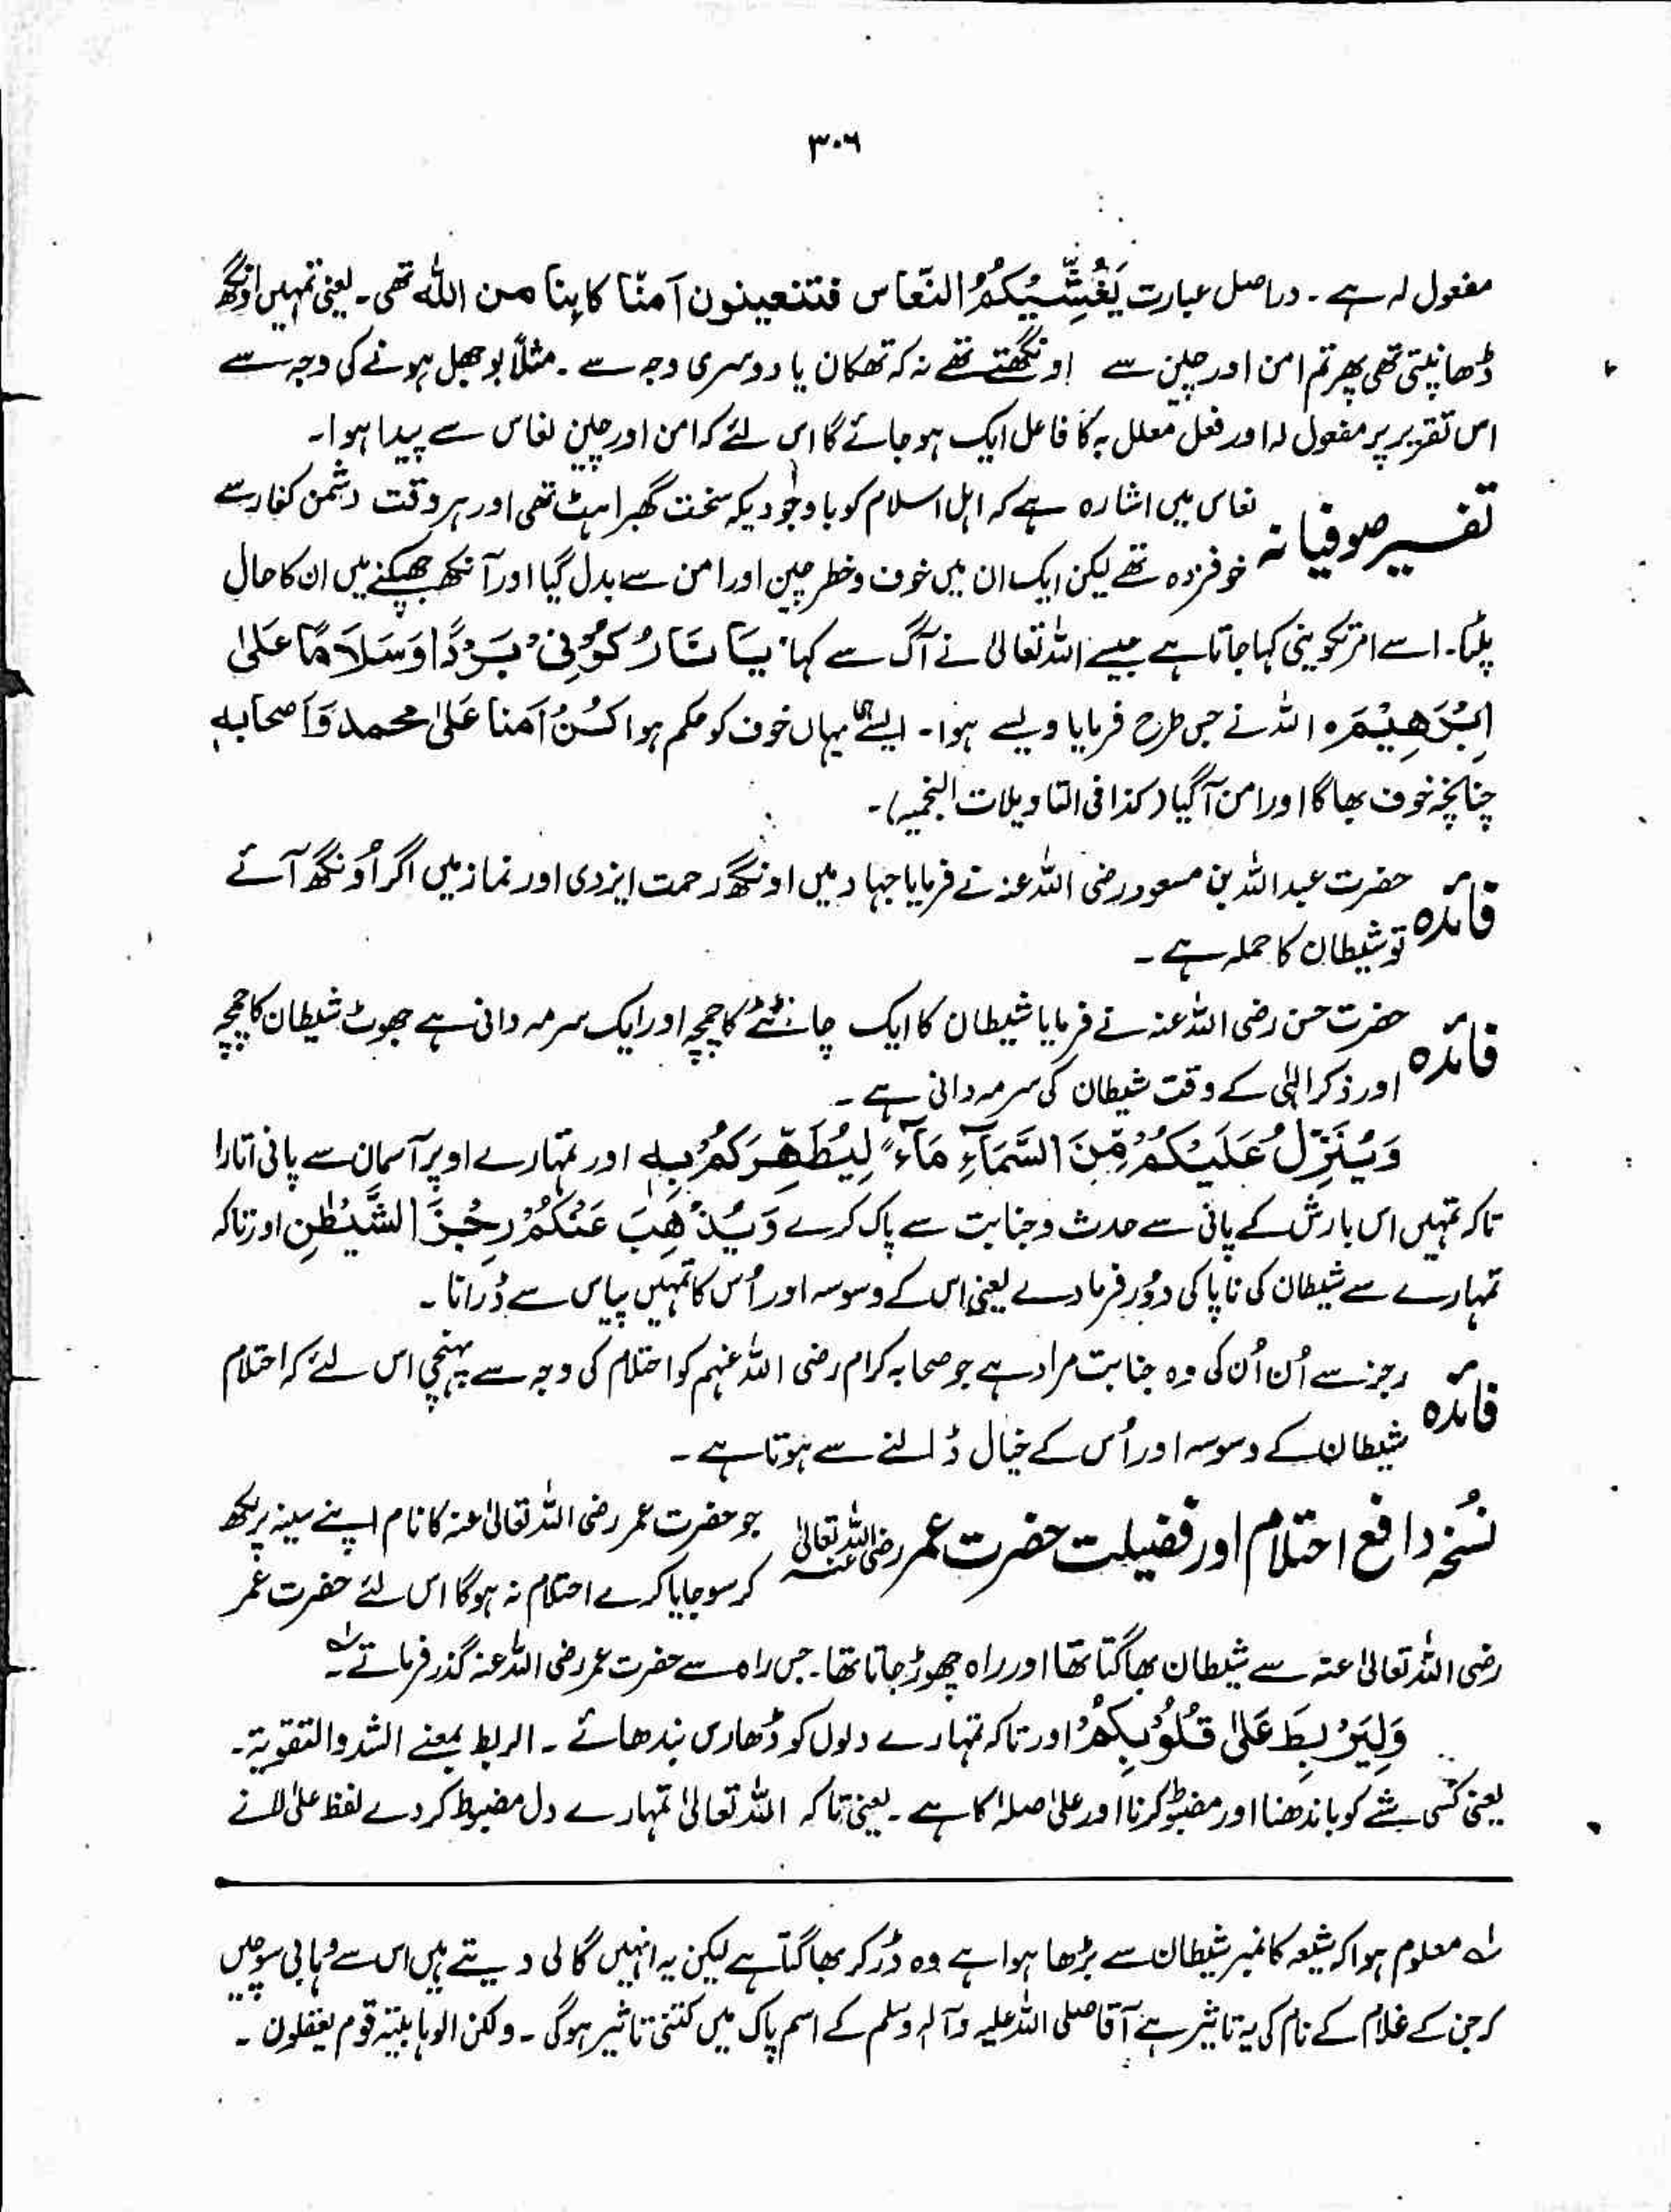 ۳۰۶
مفعول لہ ہے ۔ دراصل عبارت یُغَشِّیْکُمُ النّعَاس فتنعینون آمنًا کاہنا من اللہ تھی ۔ یعنی تمہیں اونگھ
ڈھانپتی تھی پھر تم امن اور چین سے اونگھتے تھے نہ کہ تھکان یا دوسری وجہ سے ۔ مثلاً بوجھل ہونے کی وجہ سے
اس تقریر پر مفعول لہ اور فعل معلل بہ کا فاعل ایک ہو جائے گا اس لئے کہ امن اور چین نعاس سے پیدا ہوا۔
تفسیر صوفیانہ نعاس میں اشارہ ہے کہ اہل اسلام کو باوجودیکہ سخت گھبراہٹ تھی اور ہر وقت دشمن کفار سے
خوفزدہ تھے لیکن ایک ان میں خوف و خطر چین اور امن سے بدل گیا اور آنکھ جھپکنے میں ان کا حال
پلٹا۔ اسے امر تکوینی کہا جاتا ہے جیسے اللہ تعالیٰ نے آگ سے کہا یَا نَارُ کُوْنِیْ بَرْدًا وَسَلَامًا عَلٰی
اِبْرٰھِیْمَ ہ اللہ نے جس طرح فرمایا ویسے ہوا۔ ایسے ہی یہاں خوف کو حکم ہوا کُنْ اَمنا عَلیٰ محمد وَاَصحابہ
چنانچہ خوف بھاگا اور امن آگیا (کذا فی التاویلات النجمیہ)۔
فائدہ حضرت عبداللہ بن مسعود رضی اللہ عنہ نے فرمایا جہاد میں اونگھ رحمت ایزدی اور نماز میں اگر اُونگھ آئے
تو شیطان کا حملہ ہے ۔
فائدہ حضرت حسن رضی اللہ عنہ نے فرمایا شیطان کا ایک چاٹنے کا چمچہ اور ایک سرمہ دانی ہے جھوٹ شیطان کا چمچہ
اور ذکر الٰہی کے وقت شیطان کی سرمہ دانی ہے ۔
وَیُنَزِّلُ عَلَیْکُمْ مِّنَ السَّمَآءِ مَآءً لِیُطَھِّرَکُمْ بِہٖ اور تمہارے اوپر آسمان سے پانی اتارا
تاکہ تمہیں اس بارش کے پانی سے حدث و جنابت سے پاک کرے وَیُذْھِبَ عَنْکُمْ رِجْزَ الشَّیْطٰنِ اور تاکہ
تمہارے سے شیطان کی ناپاکی دُور فرما دے یعنی اس کے وسوسہ اور اُس کا تمہیں پیاس سے ڈرانا ۔
فائدہ رجز سے اُن اُن کی وہ جنابت مراد ہے جو صحابہ کرام رضی اللہ عنہم کو احتلام کی وجہ سے پہنچی اس لئے کہ احتلام
شیطان کے وسوسہ اور اُس کے خیال ڈالنے سے ہوتا ہے ۔
نُسخہ دافع احتلام اور فضیلت حضرت عمر رضی اللہ تعالیٰ عنہ جو حضرت عمر رضی اللہ تعالیٰ عنہ کا نام اپنے سینہ پر لکھ
کر سو جایا کرے احتلام نہ ہوگا اس لئے حضرت عمر
رضی اللہ تعالیٰ عنہ سے شیطان بھاگتا تھا اور راہ چھوڑ جاتا تھا ۔ جس راہ سے حضرت عمر رضی اللہ عنہ گذر فرماتے ؎۱
وَلِیَرْبِطَ عَلٰی قُلُوْبِکُمْ اور تاکہ تمہارے دلوں کو ڈھارس بندھائے ۔ الربط بمعنے الشد والتقویۃ ۔
یعنی کسی شے کو باندھنا اور مضبوط کرنا اور علیٰ صلہ کا ہے ۔ یعنی تاکہ اللہ تعالیٰ تمہارے دل مضبوط کر دے لفظ علیٰ لانے
؎۱ معلوم ہوا کہ شیعہ کا نمبر شیطان سے بڑھا ہوا ہے وہ ڈر کر بھاگتا ہے لیکن یہ انہیں گالی دیتے ہیں اس سے وہابی سوچیں
کہ جن کے غلام کے نام کی یہ تاثیر ہے آقا صلی اللہ علیہ وآلہ وسلم کے اسم پاک میں کتنی تاثیر ہوگی ۔ ولکن الوہابیتہ قوم یعقلون ۔